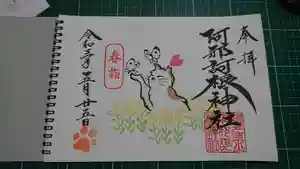 奉拝
阿邪訶根神社
春詣
令和三年五月廿五日